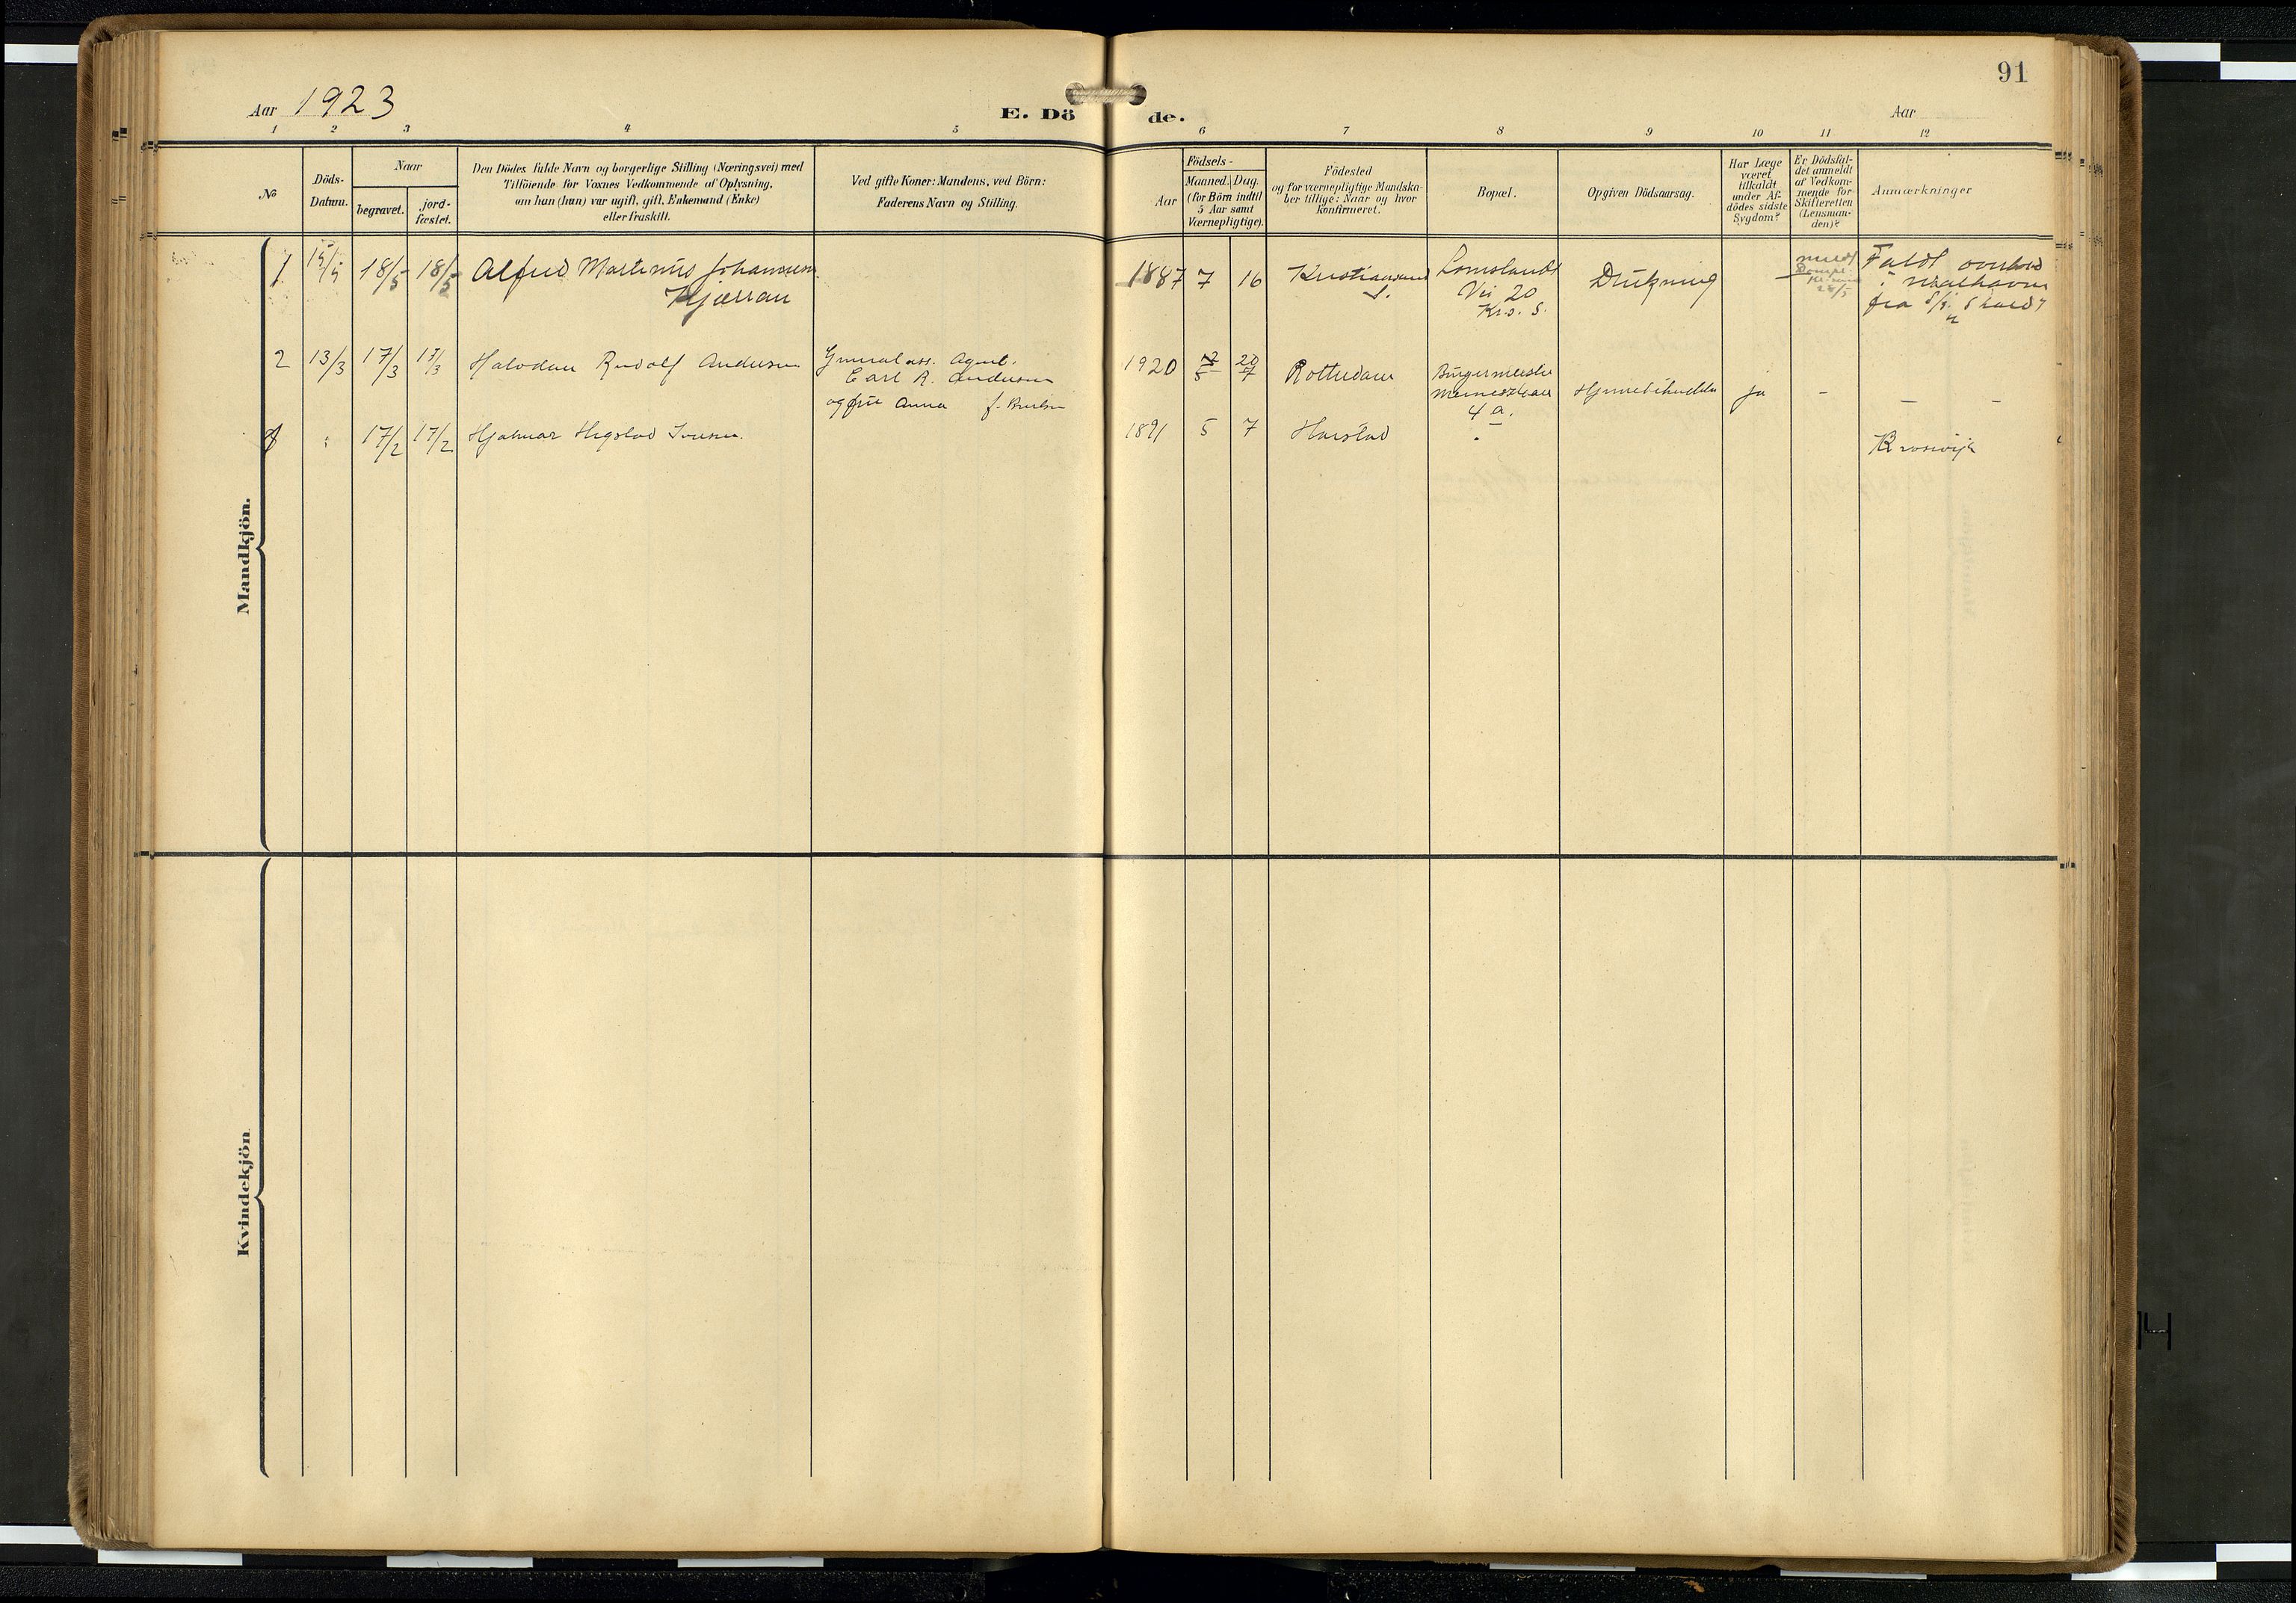 91
Aar 1923
E. Dö de.
Aar
1 2 3 4 5 6 7 8 9 10 11 12
No
Döds-
Datum.
Naar
begravet.
jord-
fæstet.
Den Dödes fulde Navn og borgerlige Stilling (Næringsvei) med
Tilföiende for Voxnes Vedkommende af Oplysning,
om han (hun) var ugift, gift, Enkemand (Enke)
eller fraskilt.
Ved gifte Koner: Mandens, ved Börn:
Faderens Navn og Stilling.
Födsels-
Aar
Maaned. Dag.
(for Börn indtil
5 Aar samt
Værnepligtige).
Födested
og for værnepligtige Mandska-
ber tillige: Naar og hvor
konfirmeret.
Bopæl.
Opgiven Dödsaarsag.
Har Læge
været
tilkaldt
under Af-
dödes sidste
Sygdom?
Er Dödsfal-
det anmeldt
af Vedkom-
mende for
Skifteretten
(Lensman-
den)?
Anmærkninger
Mandkjön.
1 15/5 18/5 18/5 Alfred Martinus Johannsen
Hjærran
1887 7 16
Kristiansand
S.
Lomslands
Vei 20
Kr.s. S.
Drukning
meldt
Faldt overbord
i
fra S/S
2 13/3 17/3 17/3 Halvdan Rudolf Andersen
Generalass. Agent.
Carl R. Andersen
og frue Anna f.
1920 5 20/7
Rotterdam
Burgermeester
4 a.
ja - - -
17/2 17/2 Hjalmar Hegstad Iversen.
1891 5 7 Harstad -
Krooswijk
Kvindekjön